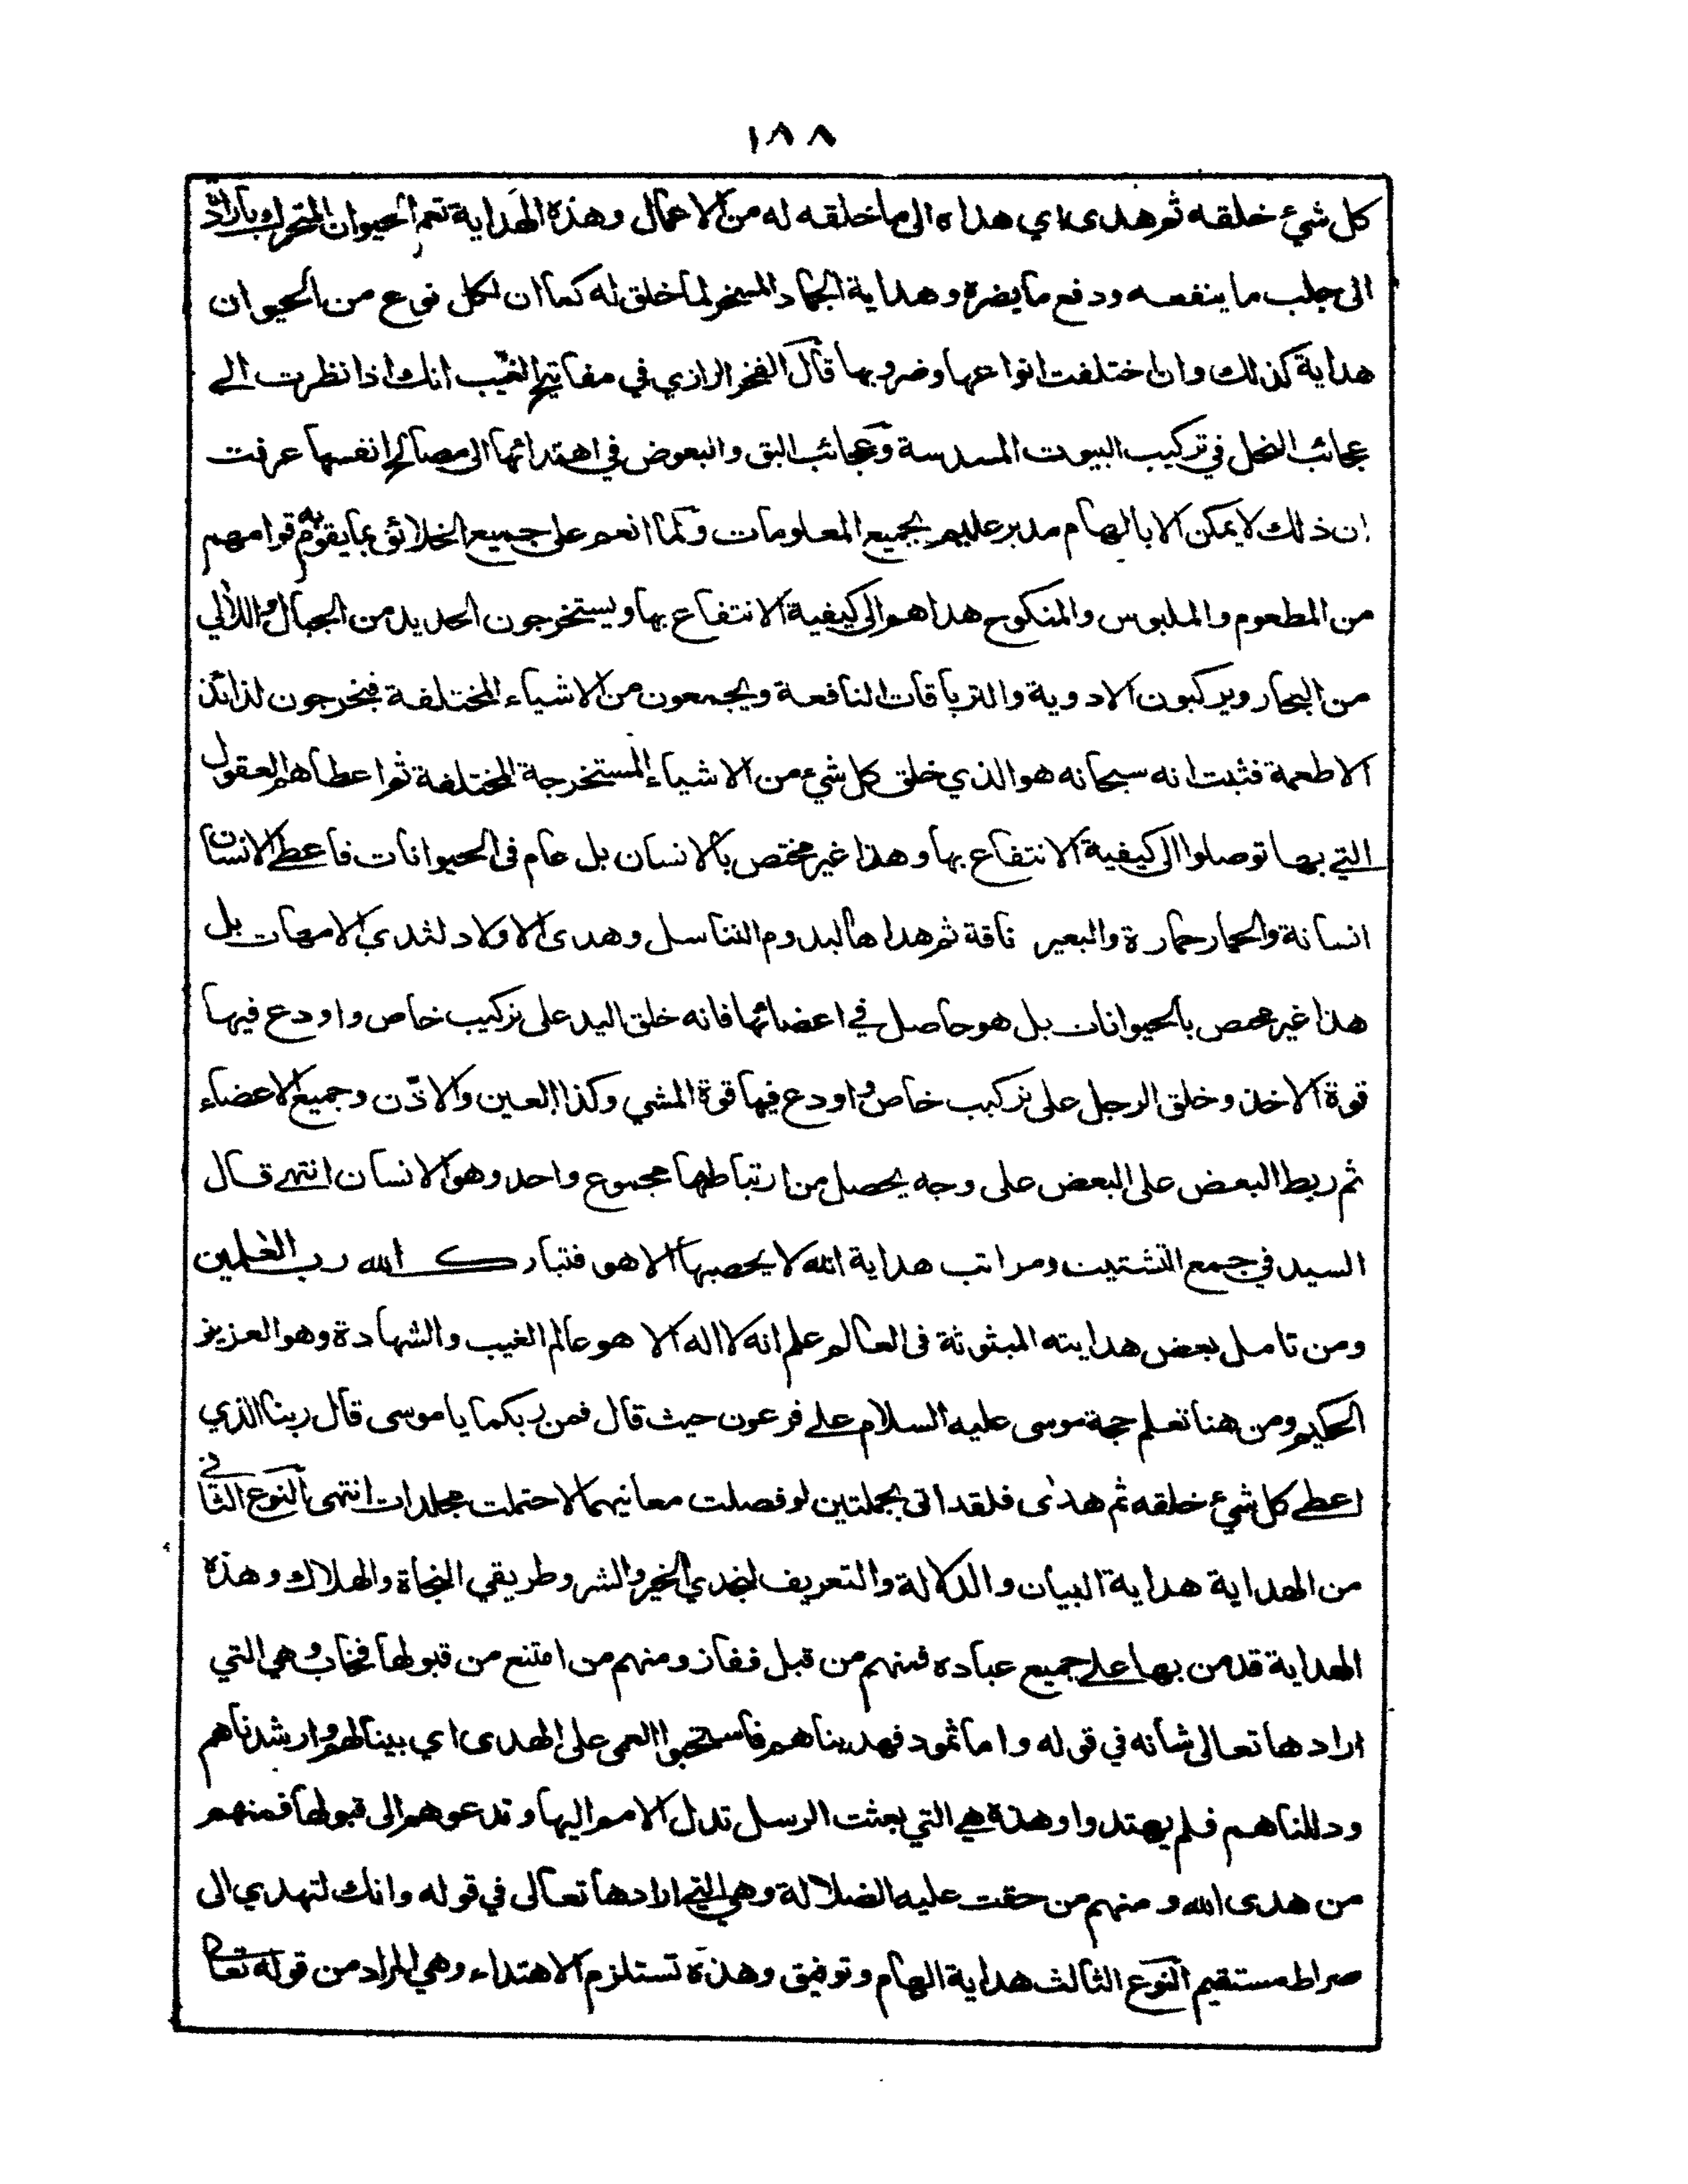 ١٨٨
كل شئ خلقه ثم هدى اي هداه الى ما خلقه له من الاعمال وهذه الهداية تعم الحيوان المتحرك بارادته
الى جلب ما ينفعه ودفع ما يضره وهداية الجماد المسخر لما خلق له كما ان لكل نوع من الحيوان
هداية كذلك وان اختلفت انواعها وضروبها قال الفخر الرازي في مفاتيح الغيب انك اذا نظرت الى
عجائب النحل في تركيب البيوت المسدسة وعجائب البق والبعوض في اهتدائها الى مصالح انفسها عرفت
ان ذلك لا يمكن الا بالهام مدبر عليم بجميع المعلومات ولما انعم على جميع الخلائق بما يقوم به قوامهم
من المطعوم والملبوس والمنكوح هداهم الى كيفية الانتفاع بها ويستخرجون الحديد من الجبال واللألي
من البحار ويركبون الادوية والترياقات النافعة ويجمعون من الاشياء المختلفة فيخرجون لذائذ
الاطعمة فثبت انه سبحانه هو الذي خلق كل شئ من الاشياء المستخرجة المختلفة ثم اعطاهم العقول
التي بها توصلوا الى كيفية الانتفاع بها وهذا غير مختص بالانسان بل عام فى الحيوانات فاعطى الانسان
انسانة والحمار حمارة والبعير ناقة ثم هداها لبدوم التناسل وهدى الاولاد لثدي الامهات بل
هذا غير مختص بالحيوانات بل هو حاصل في اعضائها فانه خلق اليد على تركيب خاص واودع فيها
قوة الاخذ وخلق الرجل على تركيب خاص واودع فيها قوة المشي وكذا العين والاذن وجميع الاعضاء
ثم ربط البعض على البعض على وجه يحصل من ارتباطها مجموع واحد وهو الانسان انتهى قال
السيد في جمع التشتيت ومراتب هداية الله لا يحصيها الا هو فتبارك الله رب العلمين
ومن تامل بعض هدايته المبثوثة فى العالم علم انه لا اله الا هو عالم الغيب والشهادة وهو العزيز
الحكيم ومن هنا تعلم حجة موسى عليه السلام على فرعون حيث قال فمن ربكما يا موسى قال ربنا الذي
اعطى كل شئ خلقه ثم هدى فلقد اتى بجملتين لو فصلت معانيهما لاحتملت مجلدات انتهى النوع الثاني
من الهداية هداية البيان والدلالة والتعريف لنجدي الخير والشر وطريقي النجاة والهلاك وهذه
الهداية قد من بها على جميع عباده فمنهم من قبل ففاز ومنهم من امتنع من قبولها فخاب وهي التي
ارادها تعالى شأنه في قوله واما ثمود فهديناهم فاستحبوا العمى على الهدى اي بينا لهم وارشدناهم
ودللناهم فلم يهتدوا وهذه هي التي بعثت الرسل تدل الامم اليها وتدعوهم الى قبولها فمنهم
من هدى الله ومنهم من حقت عليه الضلالة وهي التي ارادها تعالى في قوله وانك لتهدي الى
صراط مستقيم النوع الثالث هداية الهام وتوفيق وهذه تستلزم الاهتداء وهي المراد من قوله تعالى